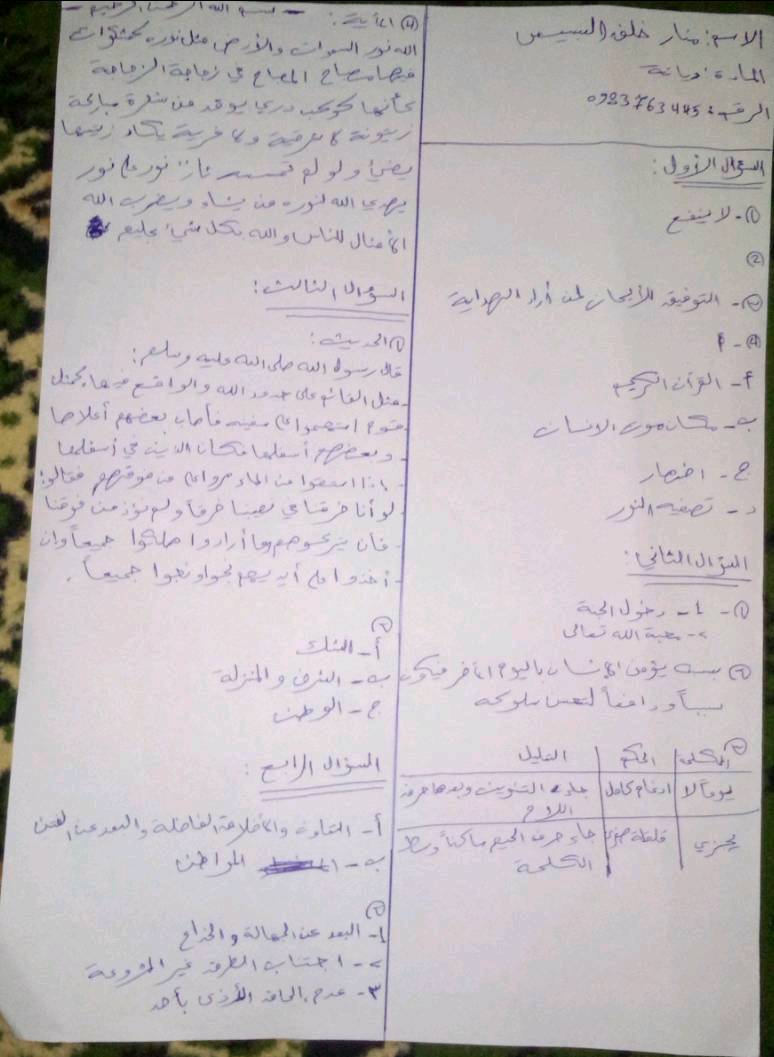 بسم الله الرحمن الرحيم
الاسم: منار خلف
المادة: ديانة
الرقم: 0983763445
السؤال الأول:
①- لا ينفع
②
③- التوفيق الأيمان لمن أراد الهداية
④-
أ- القرآن الكريم
ب- مكان موت الانسان
ج- اختصار
د- تصفية النور
السؤال الثاني:
①- 1- دخول الجنة
2- محبة الله تعالى
② يؤمن الإنسان باليوم الآخر فيكون
سبباً ودافعاً سلوكه
③ الكلمة الحكم التعليل
يوماً لا ادغام كامل جاء التنوين وبعدها حرف
اللام
يجزي قلقلة صغرى جاء حرف الجيم ساكناً وسط
الكلمة
④ الآية:
الله نور السموات والأرض مثل نوره كمشكاة
فيها مصباح المصباح في زجاجة الزجاجة
كأنها كوكب دري يوقد من شجرة مباركة
زيتونة لا شرقية ولا غربية يكاد زيتها
يضيء ولو لم تمسسه نار نور على نور
يهدي الله لنوره من يشاء ويضرب الله
الأمثال للناس والله بكل شيء عليم
السؤال الثالث:
① الحديث:
قال رسول الله صلى الله عليه وسلم:
مثل القائم على حدود الله والواقع فيها كمثل
قوم استهموا على سفينة فأصاب بعضهم أعلاها
وبعضهم أسفلها فكان الذين في أسفلها
إذا استقوا من الماء مروا على من فوقهم فقالوا:
لو أنا خرقنا في نصيبنا خرقاً ولم نؤذ من فوقنا
فان يتركوهم وما أرادوا هلكوا جميعاً وان
أخذوا على أيديهم نجوا ونجوا جميعاً.
②
أ- الشك
ب- الشرف والمنزلة
ج- الوطن
السؤال الرابع:
أ- التعاون والأخلاق الفاضلة والبعد عن الفتن
ب- المواطن
②
1- البعد عن الجهالة والخداع
2- اجتناب الطرق غير المشروعة
٣- عدم الحاق الأذى بأحد